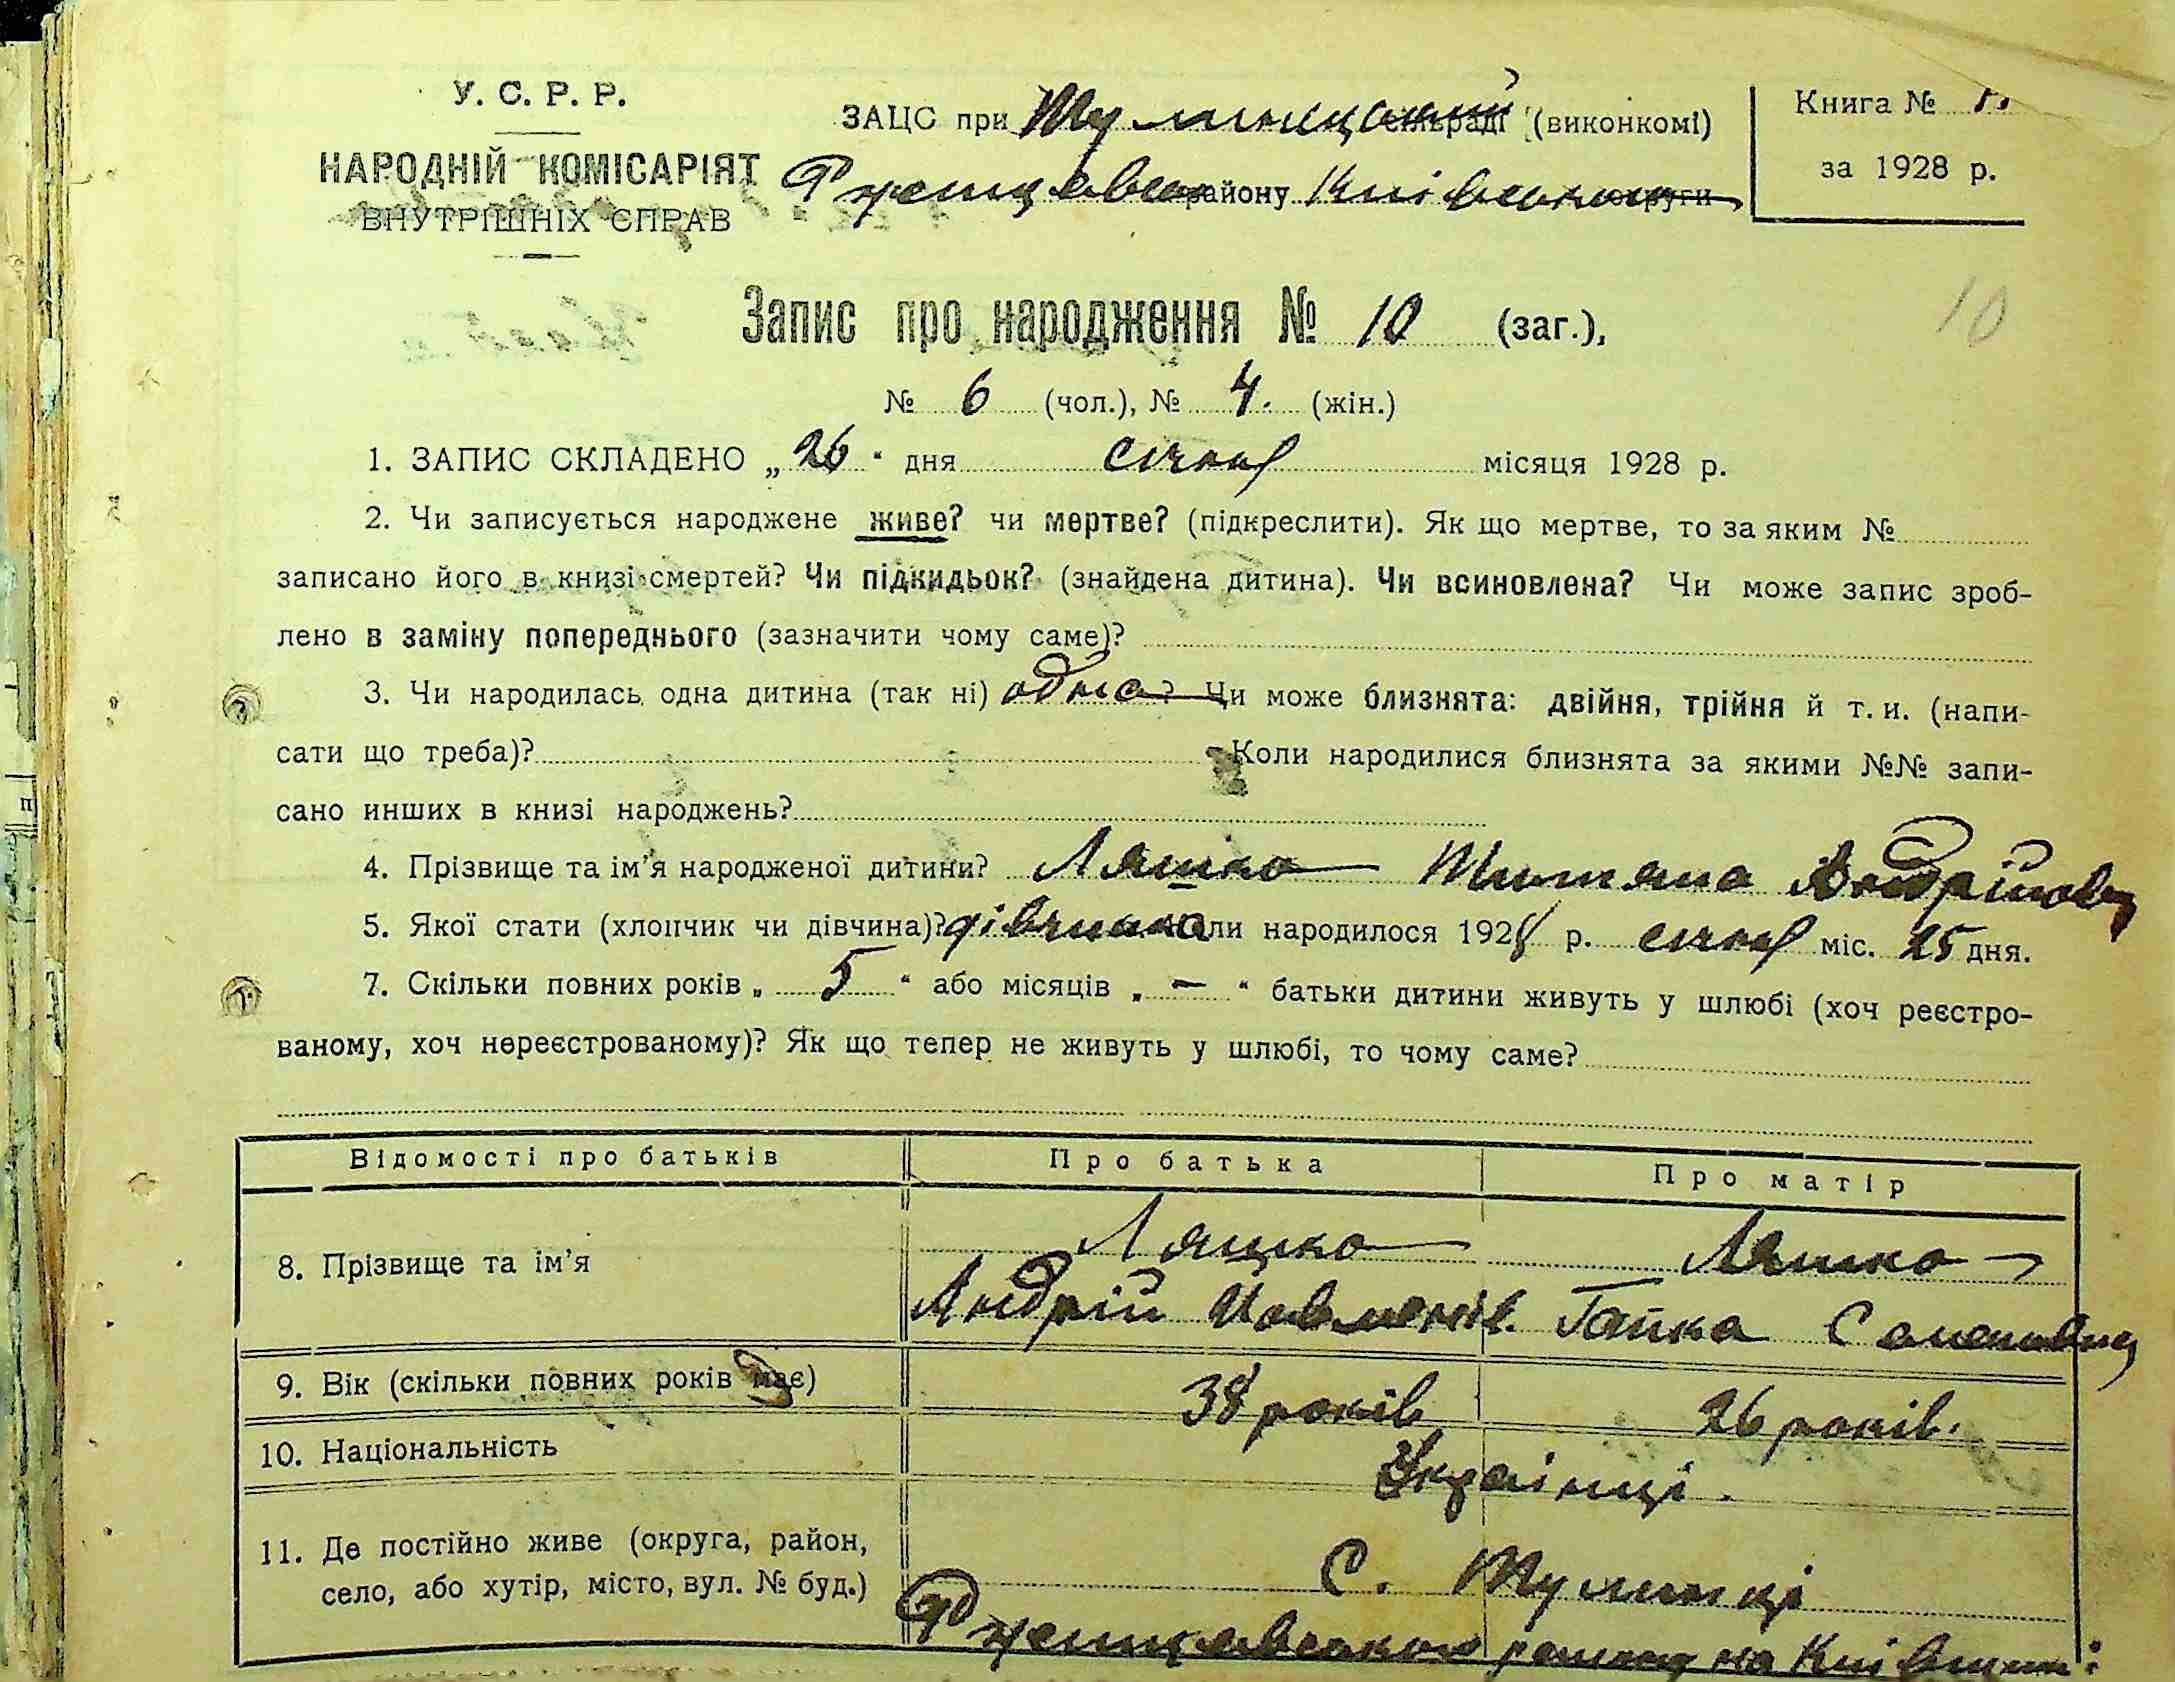 У. С. Р. Р.
НАРОДНІЙ КОМІСАРІЯТ
ВНУТРІШНІХ СПРАВ
ЗАЦС при сільраді (виконкомі)
району Київської округи
Книга №
за 1928 р.
Запис про народження № 10 (заг.),
10
№ 6 (чол.), № 4. (жін.)
1. ЗАПИС СКЛАДЕНО „26“ дня січня місяця 1928 р.
2. Чи записується народжене живе? чи мертве? (підкреслити). Як що мертве, то за яким №
записано його в книзі смертей? Чи підкидьок? (знайдена дитина). Чи всиновлена? Чи може запис зроб-
лено в заміну попереднього (зазначити чому саме)?
3. Чи народилась одна дитина (так ні) одна? Чи може близнята: двійня, трійня й т. и. (напи-
сати що треба)? Коли народилися близнята за якими №№ запи-
сано инших в книзі народжень?
4. Прізвище та ім'я народженої дитини? Ляшко Титяна
5. Якої стати (хлопчик чи дівчина)? дівчина Коли народилося 1928 р. січня міс. 25 дня.
7. Скільки повних років „ 5 “ або місяців „ — “ батьки дитини живуть у шлюбі (хоч реєстро-
ваному, хоч нереєстрованому)? Як що тепер не живуть у шлюбі, то чому саме?
Відомості про батьків Про батька Про матір
8. Прізвище та ім'я
Ляшко Ляшко
Андрій Гапка
9. Вік (скільки повних років має) 38 років 26 років.
10. Національність Українці.
11. Де постійно живе (округа, район,
село, або хутір, місто, вул. № буд.)
С. Тулинці
району на Київщині